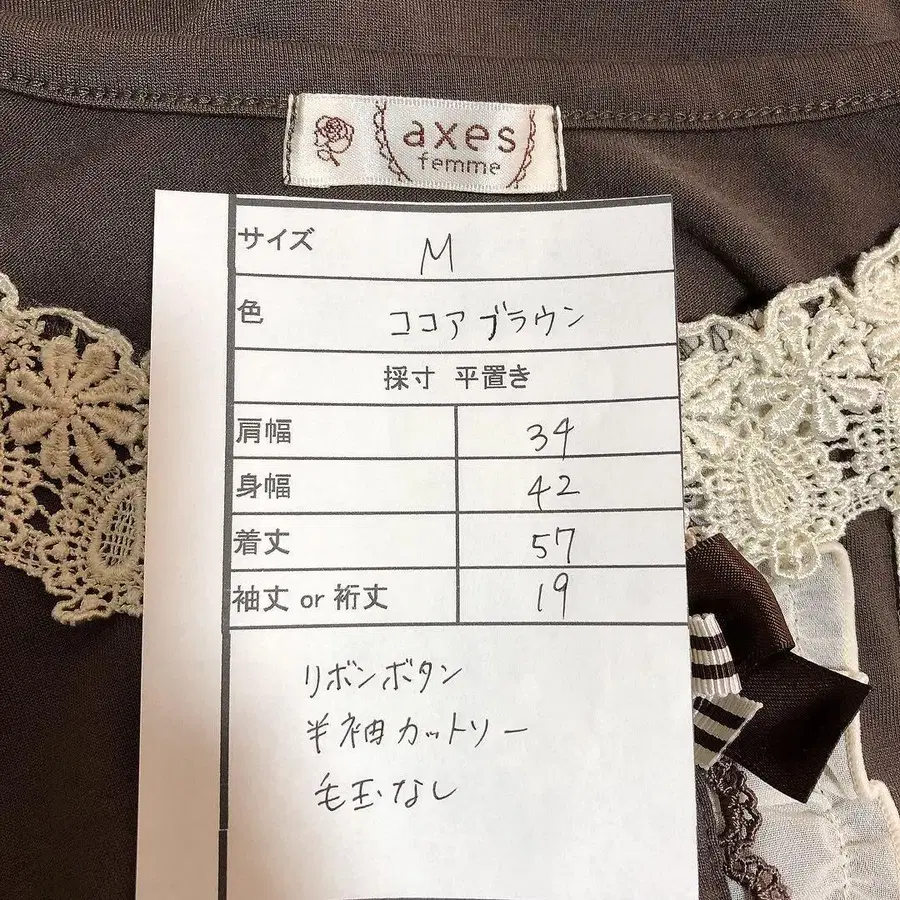 axes
femme
サイズ M
色 ココアブラウン
採寸 平置き
肩幅 34
身幅 42
着丈 57
袖丈 or 裄丈 19
リボンボタン
半袖カットソー
毛玉なし